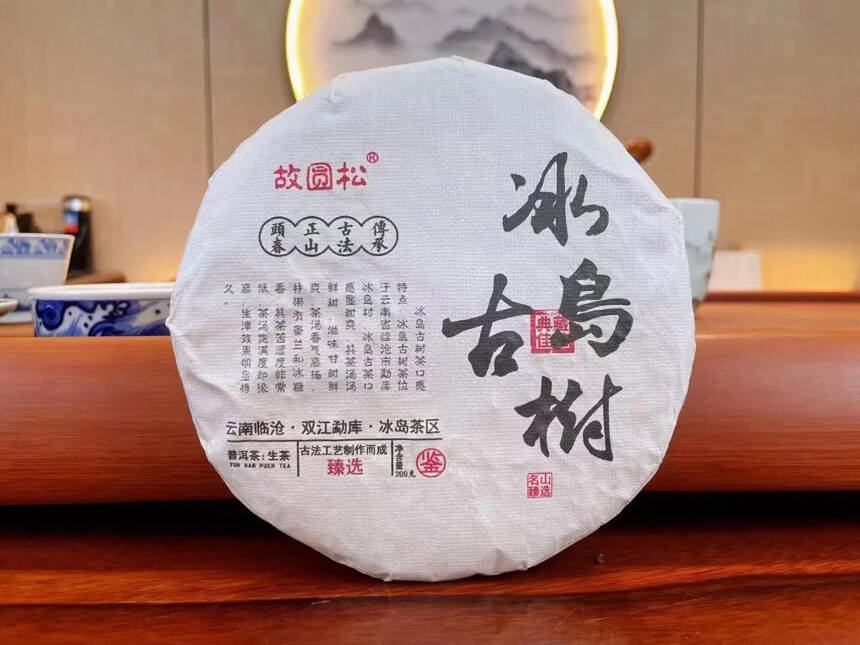 故圆松®
頭春 正山 古法 傳承
冰岛古树茶口感
特点，冰岛古树茶位
于云南省临沧市勐库
冰岛村，冰岛古茶口
感显甜爽，其茶汤汤
鲜甜，滋味甘甜鲜
爽，茶汤香气高扬，
并带有蜜兰和冰糖
香，其茶苦涩度非常
低，茶汤饱满度却很
高，生津效果明显持
久。
云南临沧·双江勐库·冰岛茶区
普洱茶：生茶
YUN NAN PUER TEA
古法工艺制作而成
臻选
净含量
200克
鉴
冰島
古樹
典藏
佳
名山
臻选